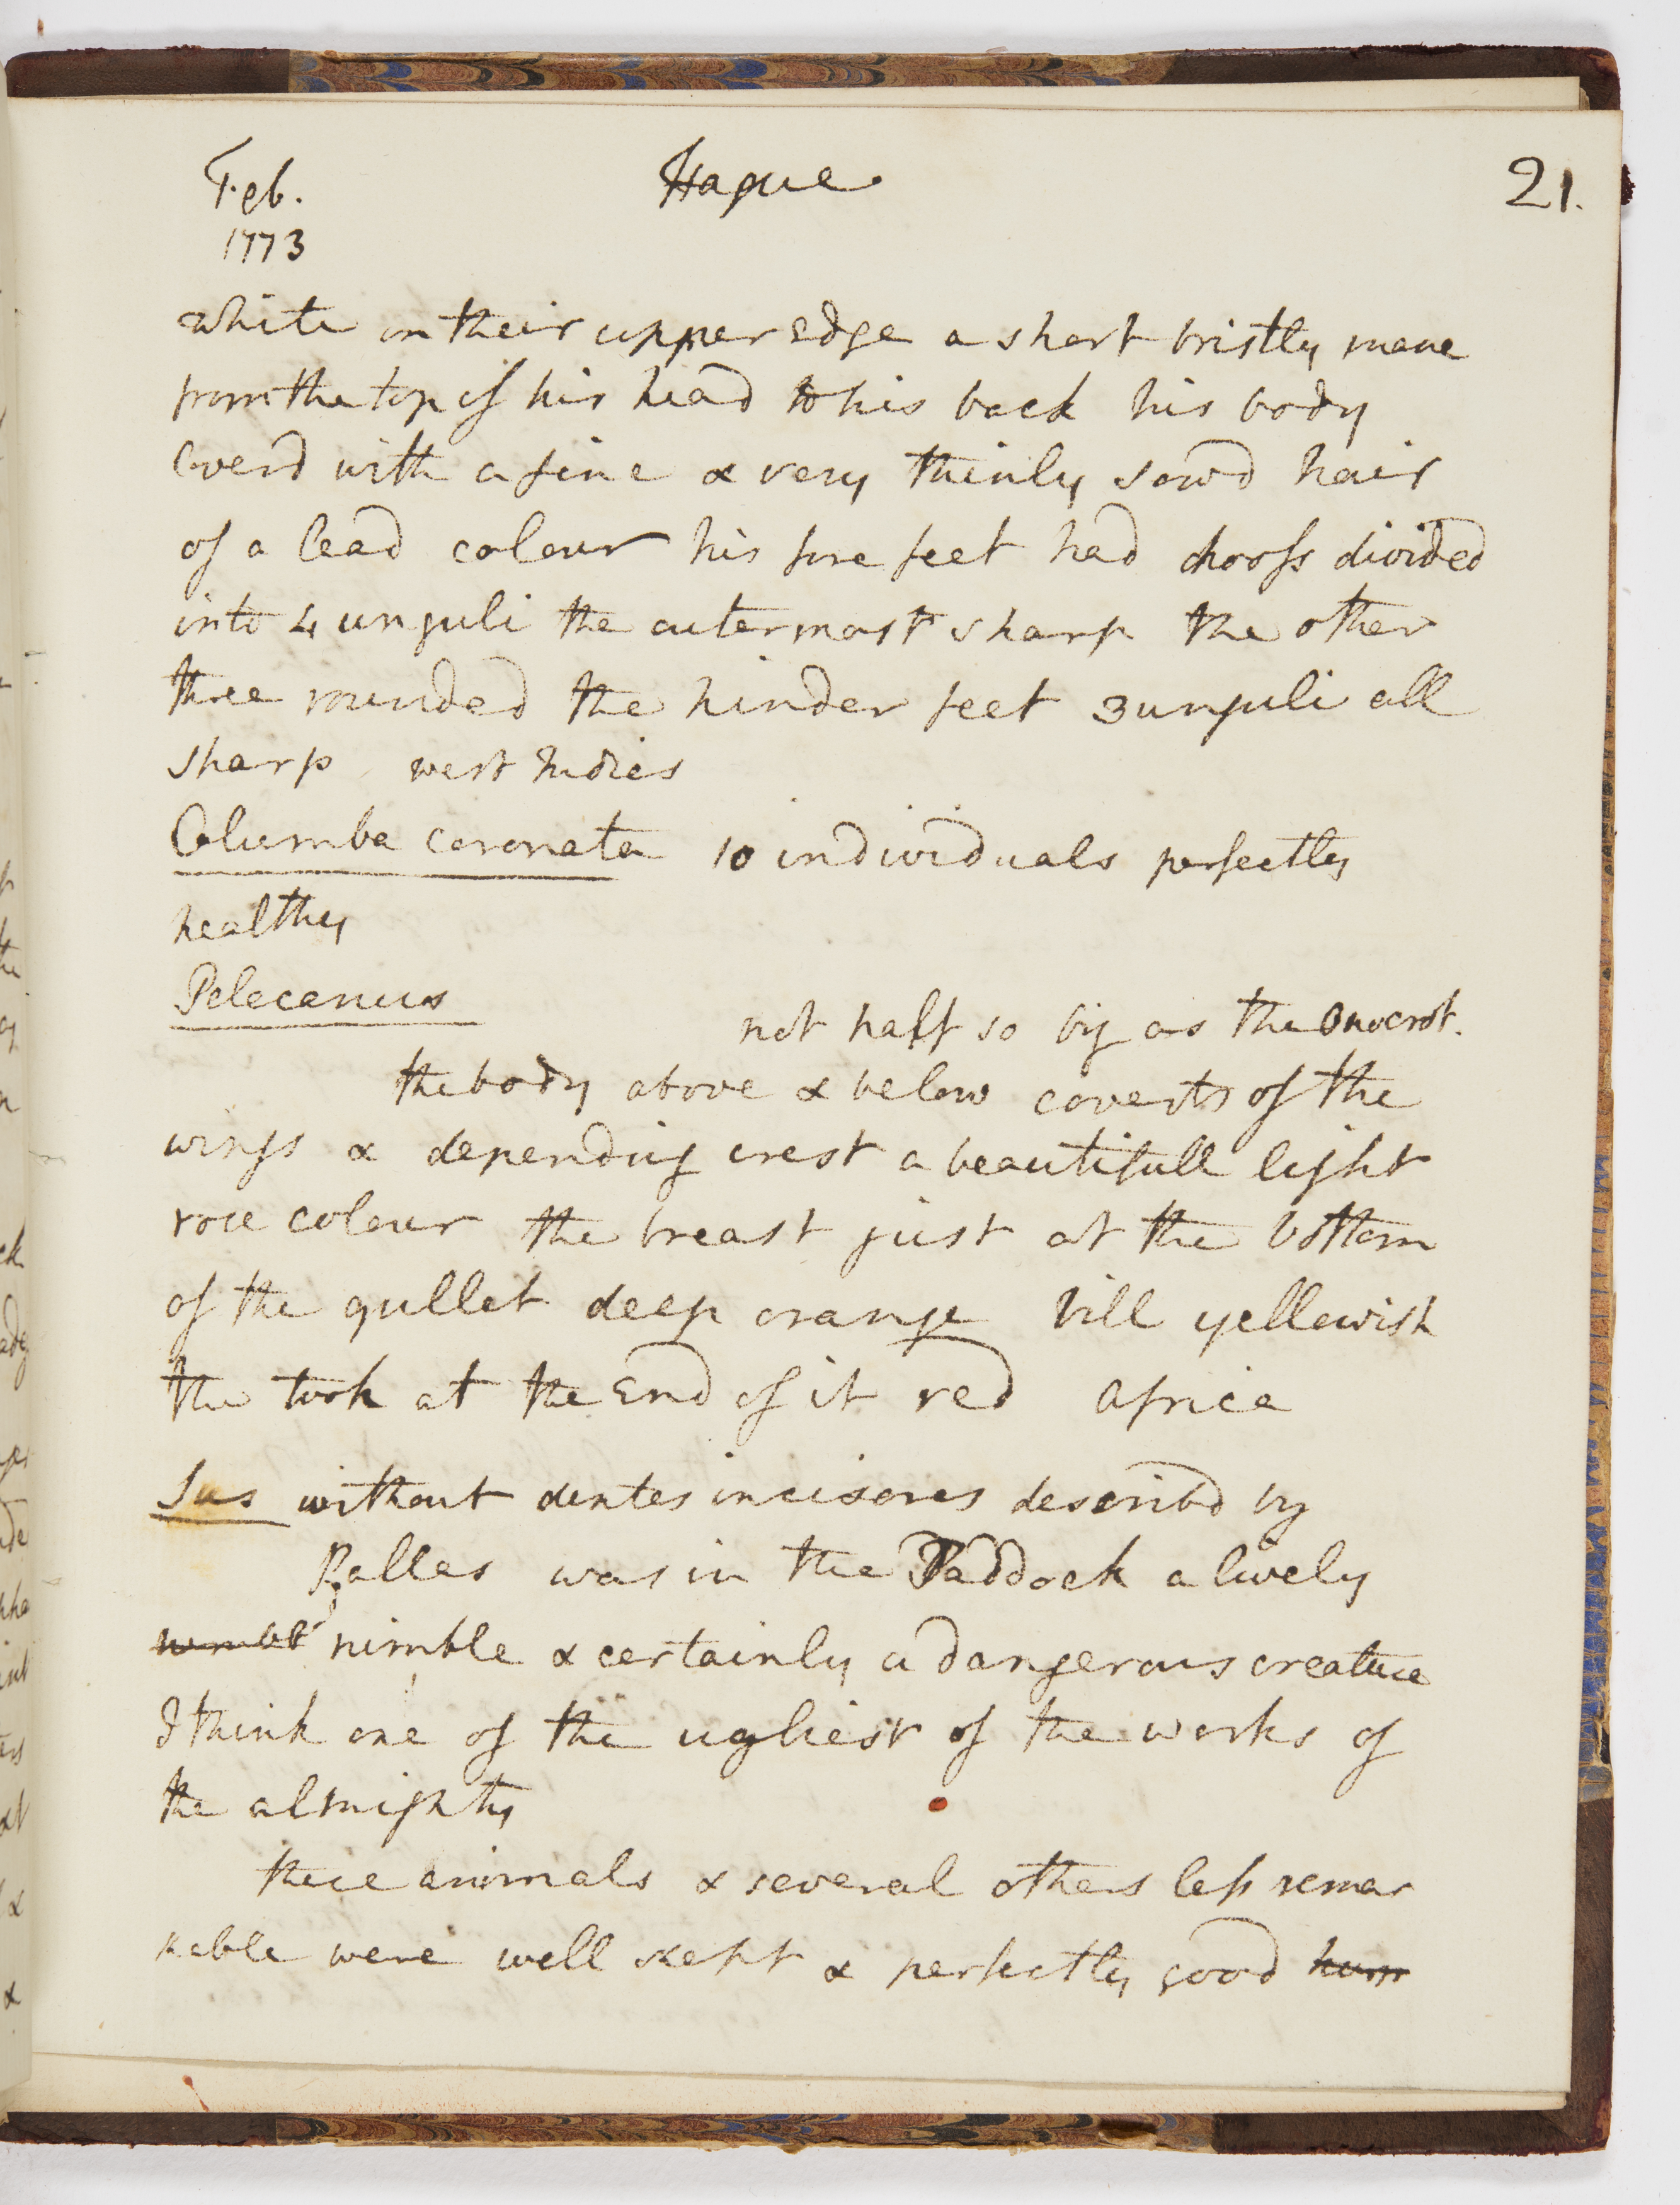 Feb. Hague 21.
1773
white on their upper Edge a short bristly mane
from the top of his head to his back his body
coverd with a fine & very thinly sowd hair
of a lead colour his fore feet had hoofs divided
into 4 unguli the outermost sharp the other
three rounded the hinder feet 3 unguli all
sharp west Indies
Columba coronata 10 individuals perfectly
healthy
Pelecanus not half so big as the Onocrot.
the body above & below coverts of the
wings & depending crest a beautifull light
rose colour the breast just at the bottom
of the gullet deep orange bill yellowish
the hook at the End of it red Africa
Sus without dentes incisores describd by
Pallas was in the Paddock a lively
nimble & certainly a dangerous creature
I think one of the ugliest of the works of
the almighty
these animals & several others less remar
kable were well kept & perfectly good hum